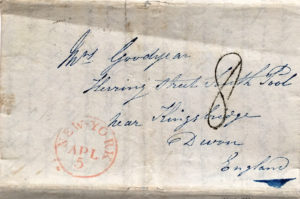 Mrs Goodyear
Herring Street South Pool
near Kingsbridge
Devon
England
8
NEW-YORK
APL
5